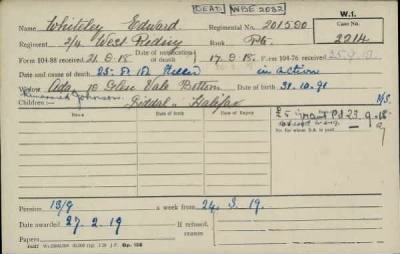 DEAD WDE 2032
W.1.
Name Whiteley Edward Regimental No. 201580 Case No.
Regiment 2/4 West Riding Rank Pte. 2214
Form 104-88 received 21.9.18. Date of notification of death 17.9.18. Form 104-76 received 25.9.18
Date and cause of death 25.8.18 Killed in action
Widow Ada, 10 Glen Vale Bottom Date of birth 31.10.91
Remarried Johnson. Siddal Halifax
Children:
Name. Date of Birth. Date of Expiry.
£5 grant Pd 23.9.18
No. for whom S.A. is paid
Pension 13/9 a week from 24.3.19.
Date awarded 27.2.19 If refused, reason
Papers
Gp. 138